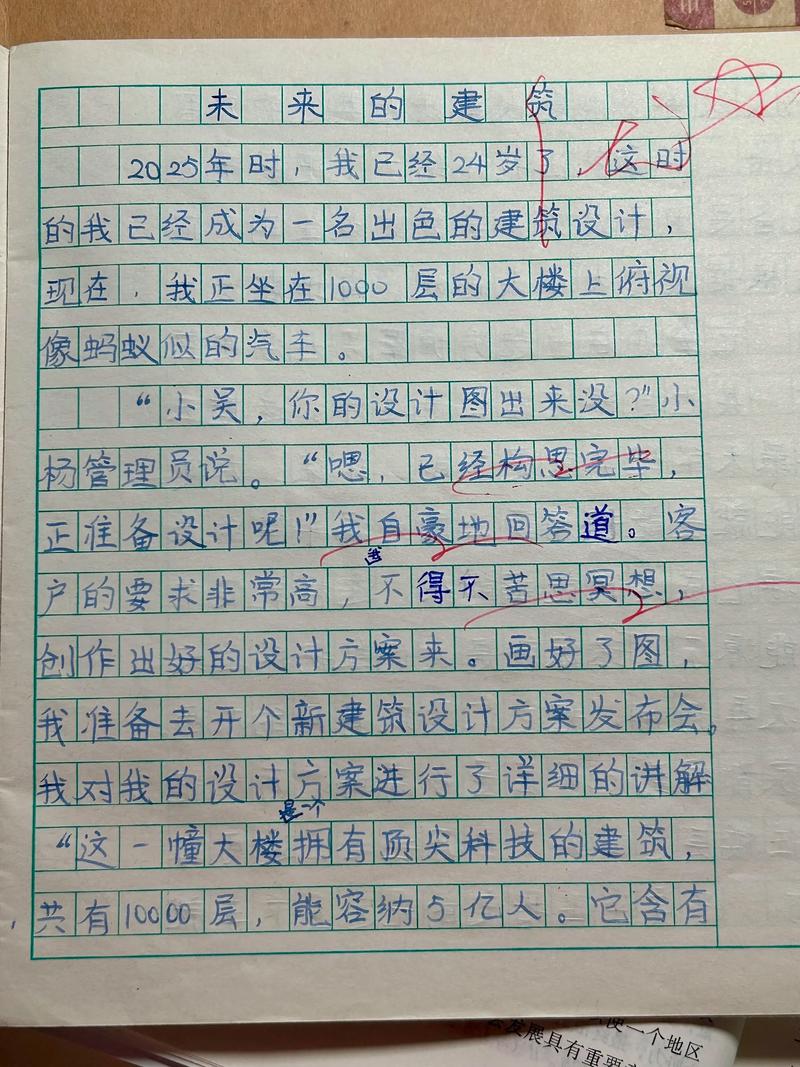 未来的建筑
2025年时，我已经24岁了，这时
的我已经成为一名出色的建筑设计，
现在，我正坐在1000层的大楼上俯视
像蚂蚁似的汽车。
“小吴，你的设计图出来没？”小
杨管理员说。“嗯，已经构思完毕，
正准备设计呢！”我自豪地回答道。客
户的要求非常高，我不得不苦思冥想，
创作出好的设计方案来。画好了图，
我准备去开个新建筑设计方案发布会。
我对我的设计方案进行了详细的讲解
“这一幢大楼是一个拥有顶尖科技的建筑，
共有10000层，能容纳5亿人。它含有
使一个地区
发展具有重要